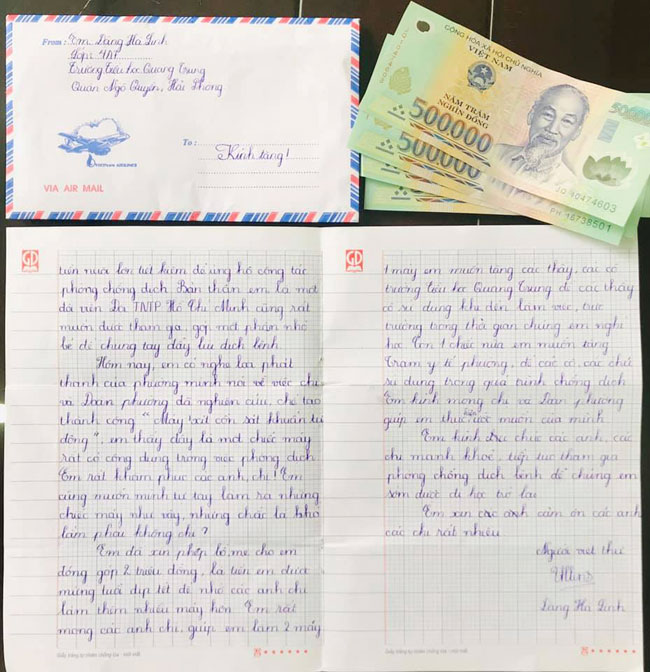 From: Em Đặng Hà Linh
Lớp: 4A7
Trường tiểu học Quang Trung
Quận Ngô Quyền, Hải Phòng
To: Kính tặng!
VIETNAM AIRLINES
VIA AIR MAIL
CỘNG HÒA XÃ HỘI CHỦ NGHĨA
VIỆT NAM
NĂM TRĂM
NGHÌN ĐỒNG
500.000
500.000
500.000
500.000
JO 16474603
PH 16738501
GD
tiền nuôi lợn tiết kiệm để ủng hộ công tác
phòng chống dịch. Bản thân em là một
đội viên Đội TNTP Hồ Chí Minh cũng rất
muốn được tham gia, góp một phần nhỏ
bé để chung tay đẩy lùi dịch bệnh.
Hôm nay, em có nghe loa phát
thanh của phường mình nói về việc chị
và Đoàn phường đã nghiên cứu, chế tạo
thành công "Máy sát khuẩn tự
động", em thấy đây là một chiếc máy
rất có công dụng trong việc phòng dịch
Em rất khâm phục các anh, chị! Em
cũng muốn mình tự tay làm ra những
chiếc máy như vậy, nhưng chắc là khó
lắm phải không chị?
Em đã xin phép bố, mẹ cho em
đóng góp 2 triệu đồng, là tiền em được
mừng tuổi dịp tết để nhờ các anh chị
làm thêm nhiều máy hơn. Em rất
mong các anh chị, giúp em làm 2 máy
Giấy trắng tự nhiên chống lóa - mỗi mắt
GD
1 máy em muốn tặng các thầy, các cô
trường tiểu học Quang Trung để các thầy
cô sử dụng khi đến làm việc, trực
trường trong thời gian chúng em nghỉ
học. Còn 1 chiếc nữa em muốn tặng
Trạm y tế phường, để các cô, các chú
sử dụng trong quá trình chống dịch
Em kính mong chị và Đoàn phường
giúp em thực hiện ước muốn của mình
Em kính chúc các anh, các
chị mạnh khoẻ, tiếp tục tham gia
phòng chống dịch bệnh để chúng em
sớm được đi học trở lại
Em xin cảm ơn các anh
các chị rất nhiều
Người viết thư
Đặng Hà Linh